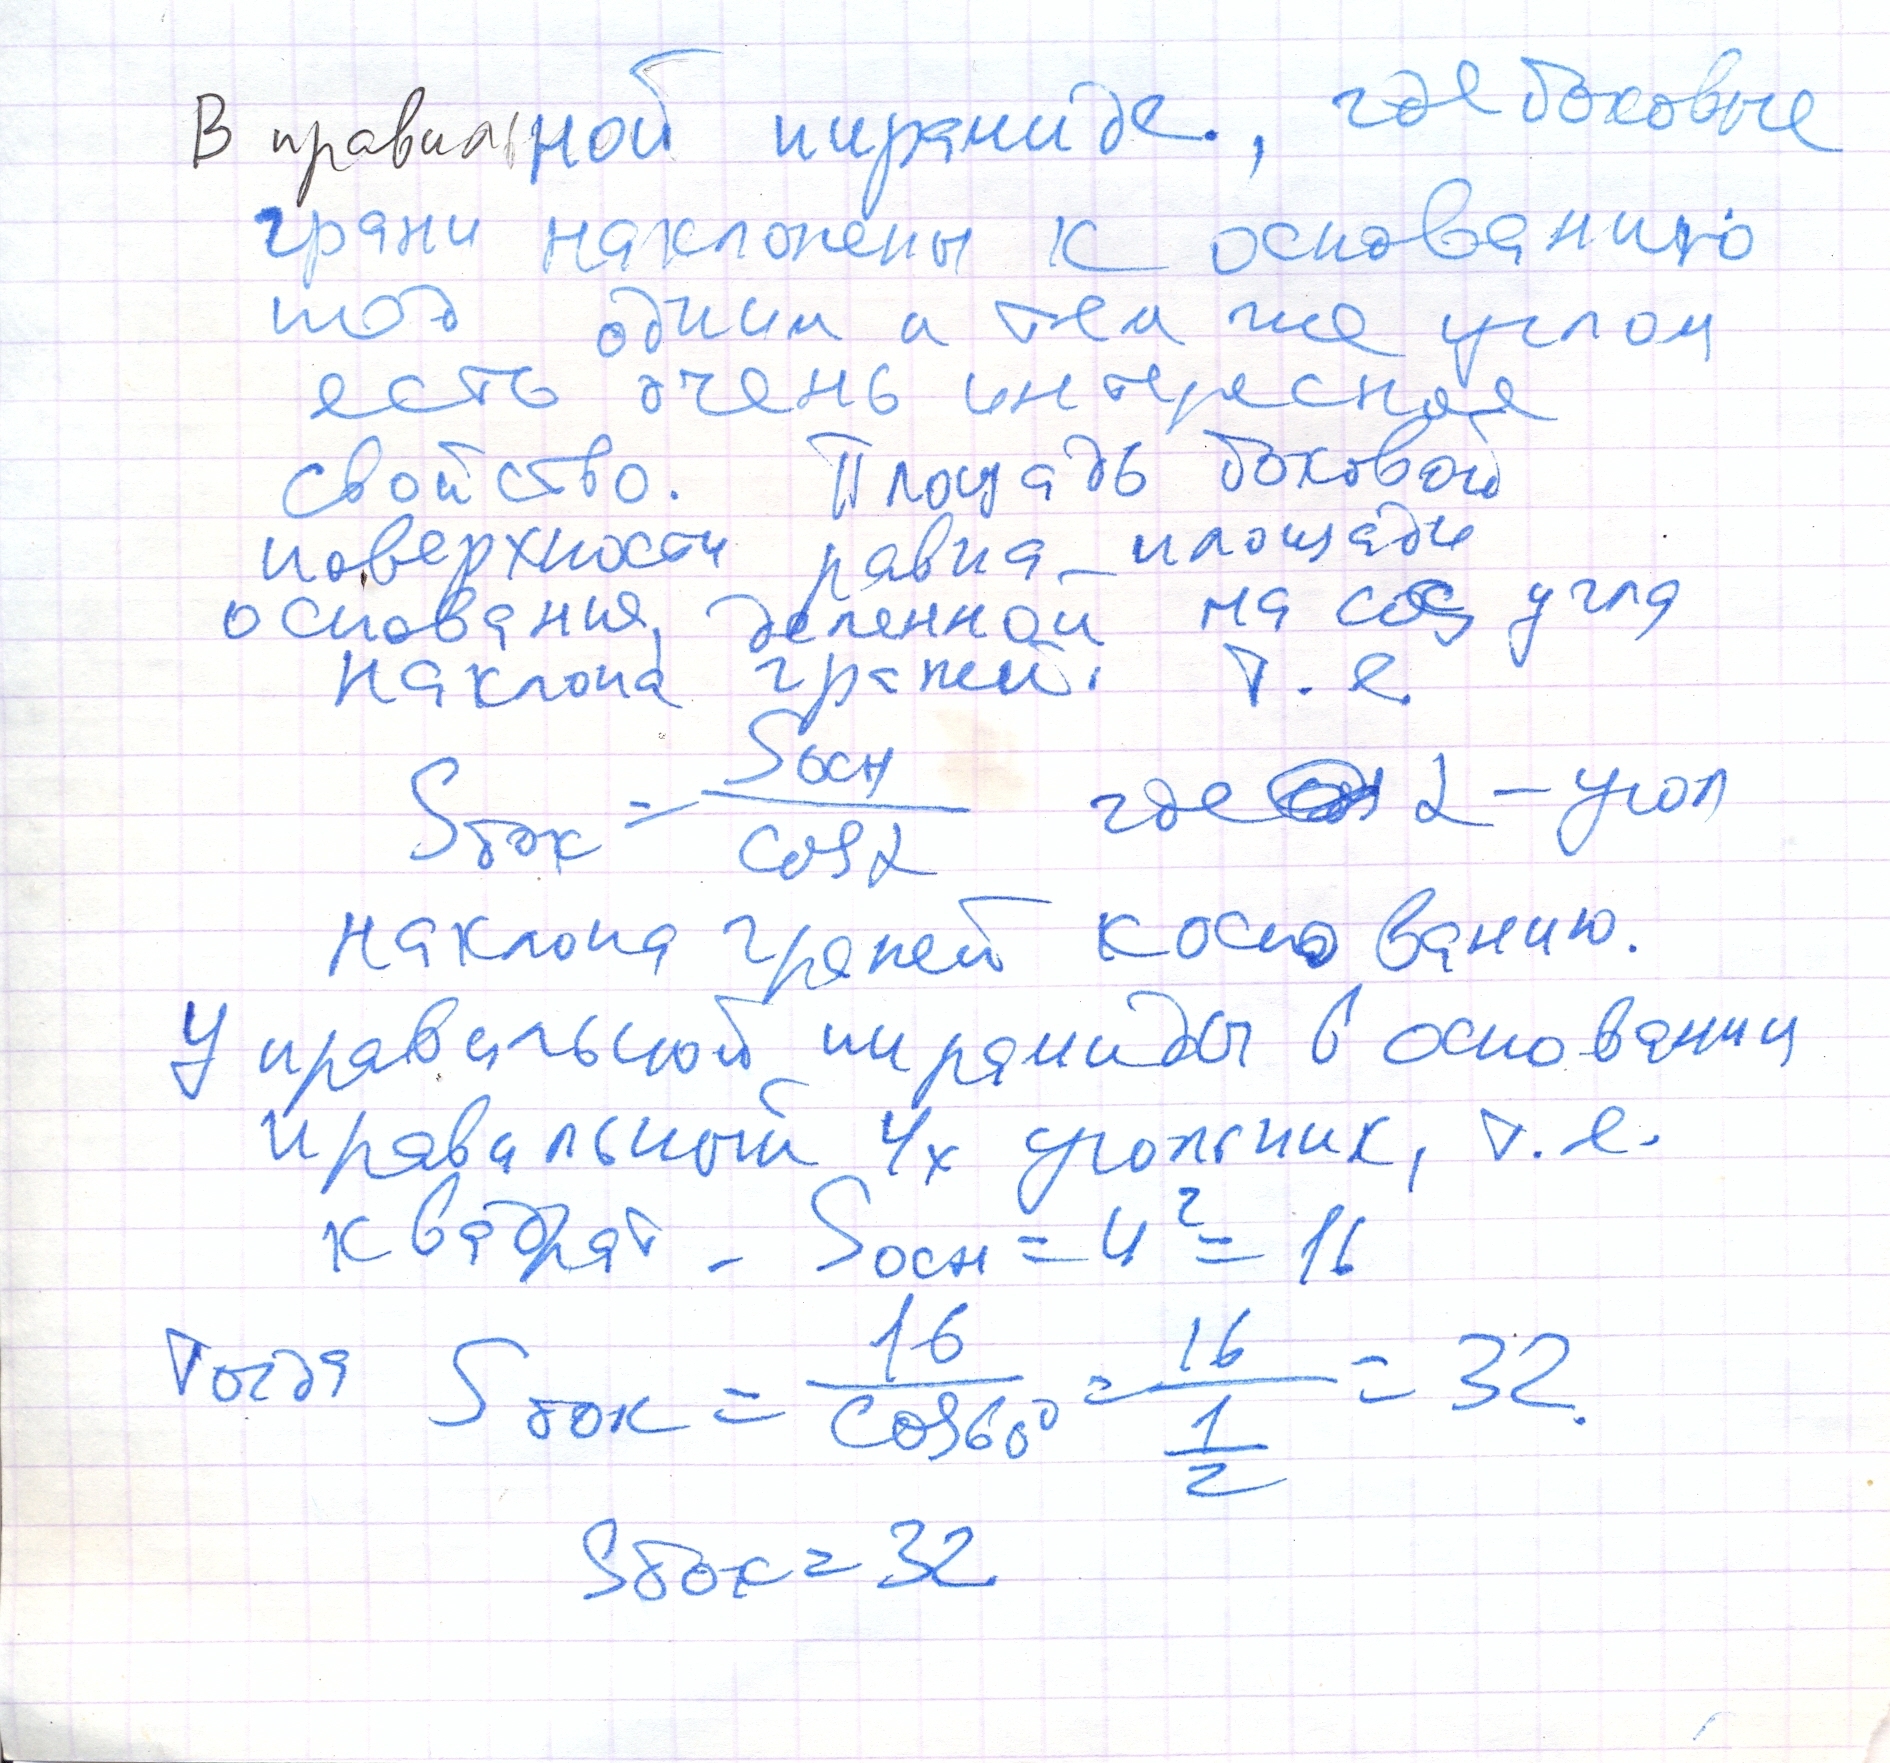 В правильной пирамиде, где боковые
грани наклонены к основанию
под одним и тем же углом
есть очень интересное
свойство. Площадь боковой
поверхности равна площади
основания, деленной на cos угла
наклона граней. т.е.
Sбок = Sосн / cosα где α – угол
наклона граней к основанию.
У правильной пирамиды в основании
правильный 4х угольник, т.е.
квадрат - Sосн = 4² = 16
Тогда Sбок = 16 / cos60° = 16 / (1/2) = 32.
Sбок = 32